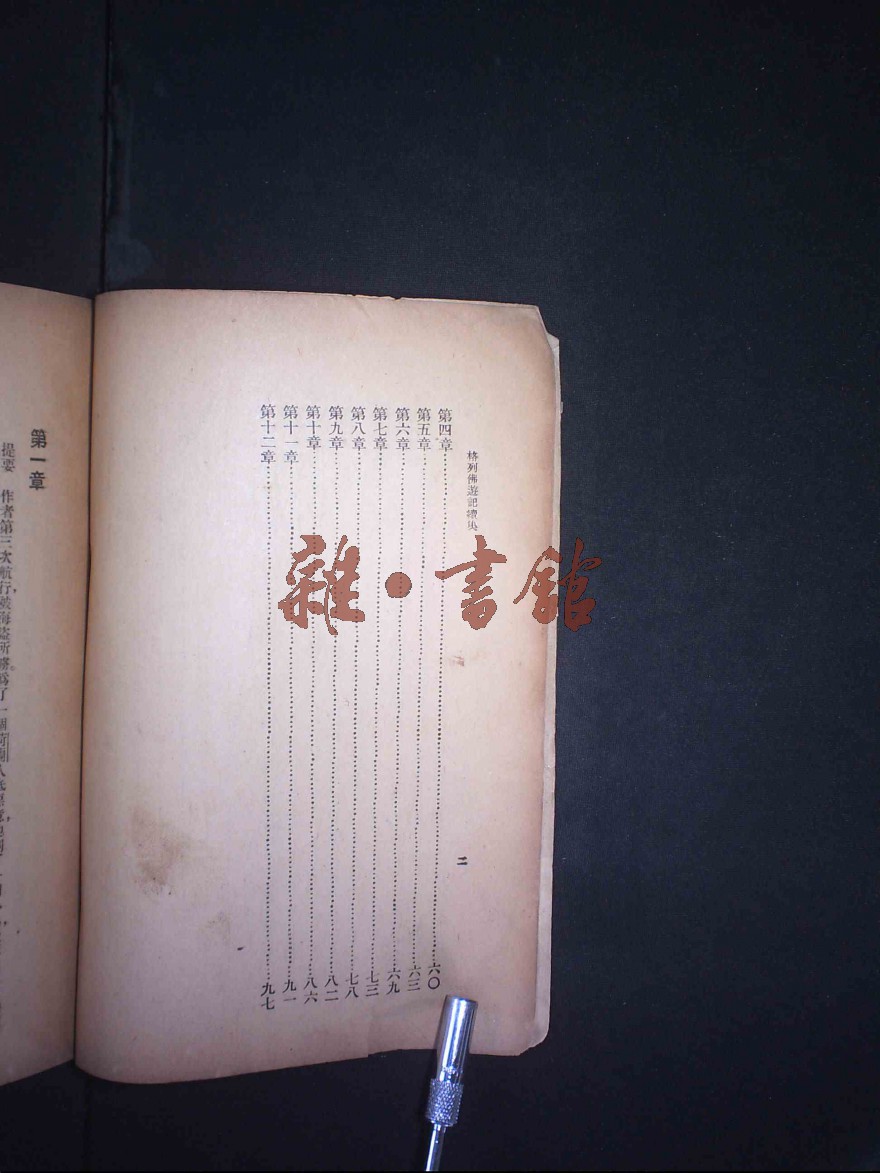 格列佛遊記續集
第四章……六〇
第五章……六三
第六章……六九
第七章……七三
第八章……七八
第九章……八二
第十章……八六
第十一章……九一
第十二章……九七
二
第一章
提要 作者第三次航行,被海盜所
雜·書館